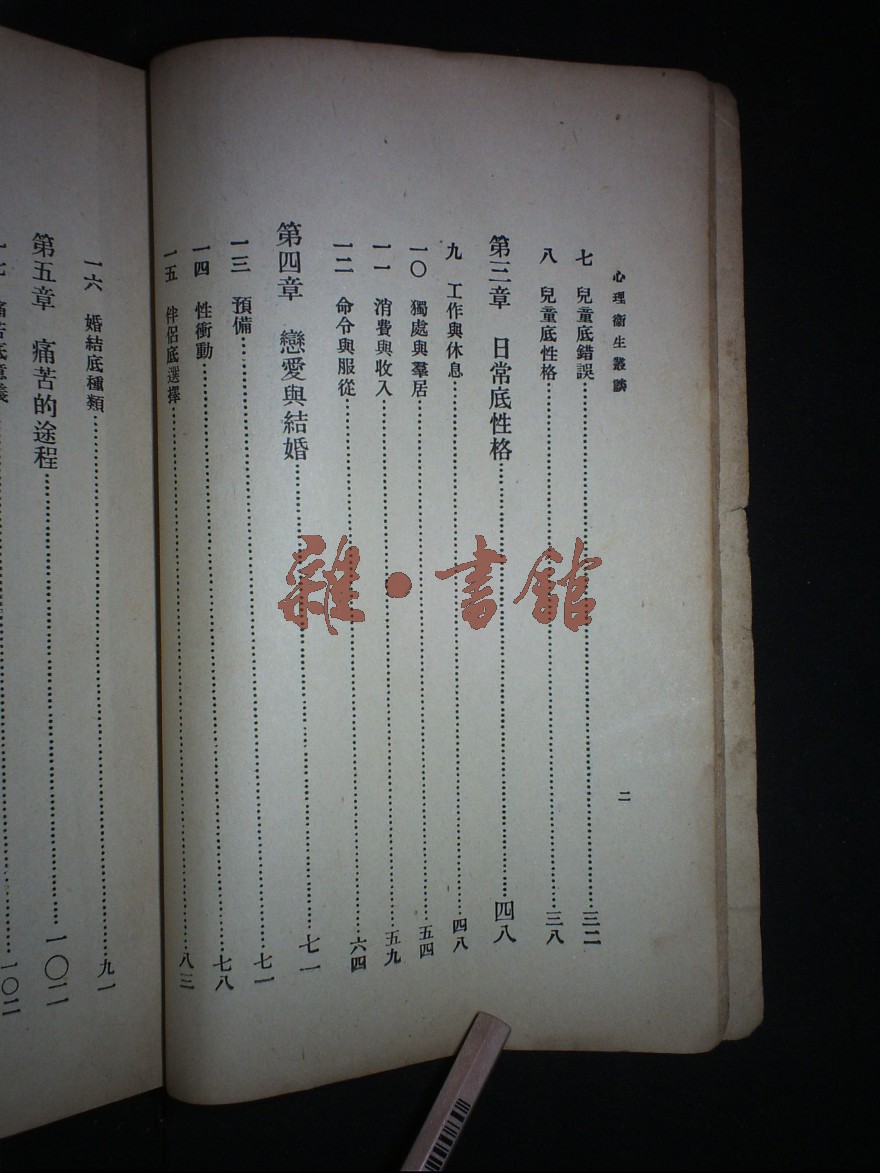 心理衞生叢談
二
七 兒童底錯誤…………三二
八 兒童底性格…………三八
第三章 日常底性格…………四八
九 工作與休息…………四八
一〇 獨處與羣居…………五四
一一 消費與收入…………五九
一二 命令與服從…………六四
第四章 戀愛與結婚…………七一
一三 預備…………七一
一四 性衝動…………七八
一五 伴侶底選擇…………八三
一六 婚結底種類…………九一
第五章 痛苦的途程…………一〇二
一七 痛苦底意義…………一〇二
雜·書館